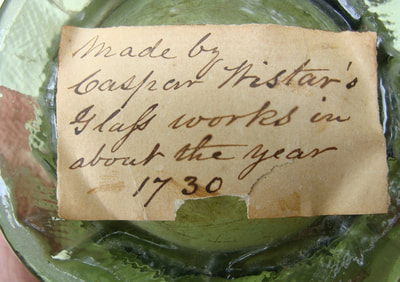 Made by
Caspar Wistar's
Glaſs works in
about the year
1730